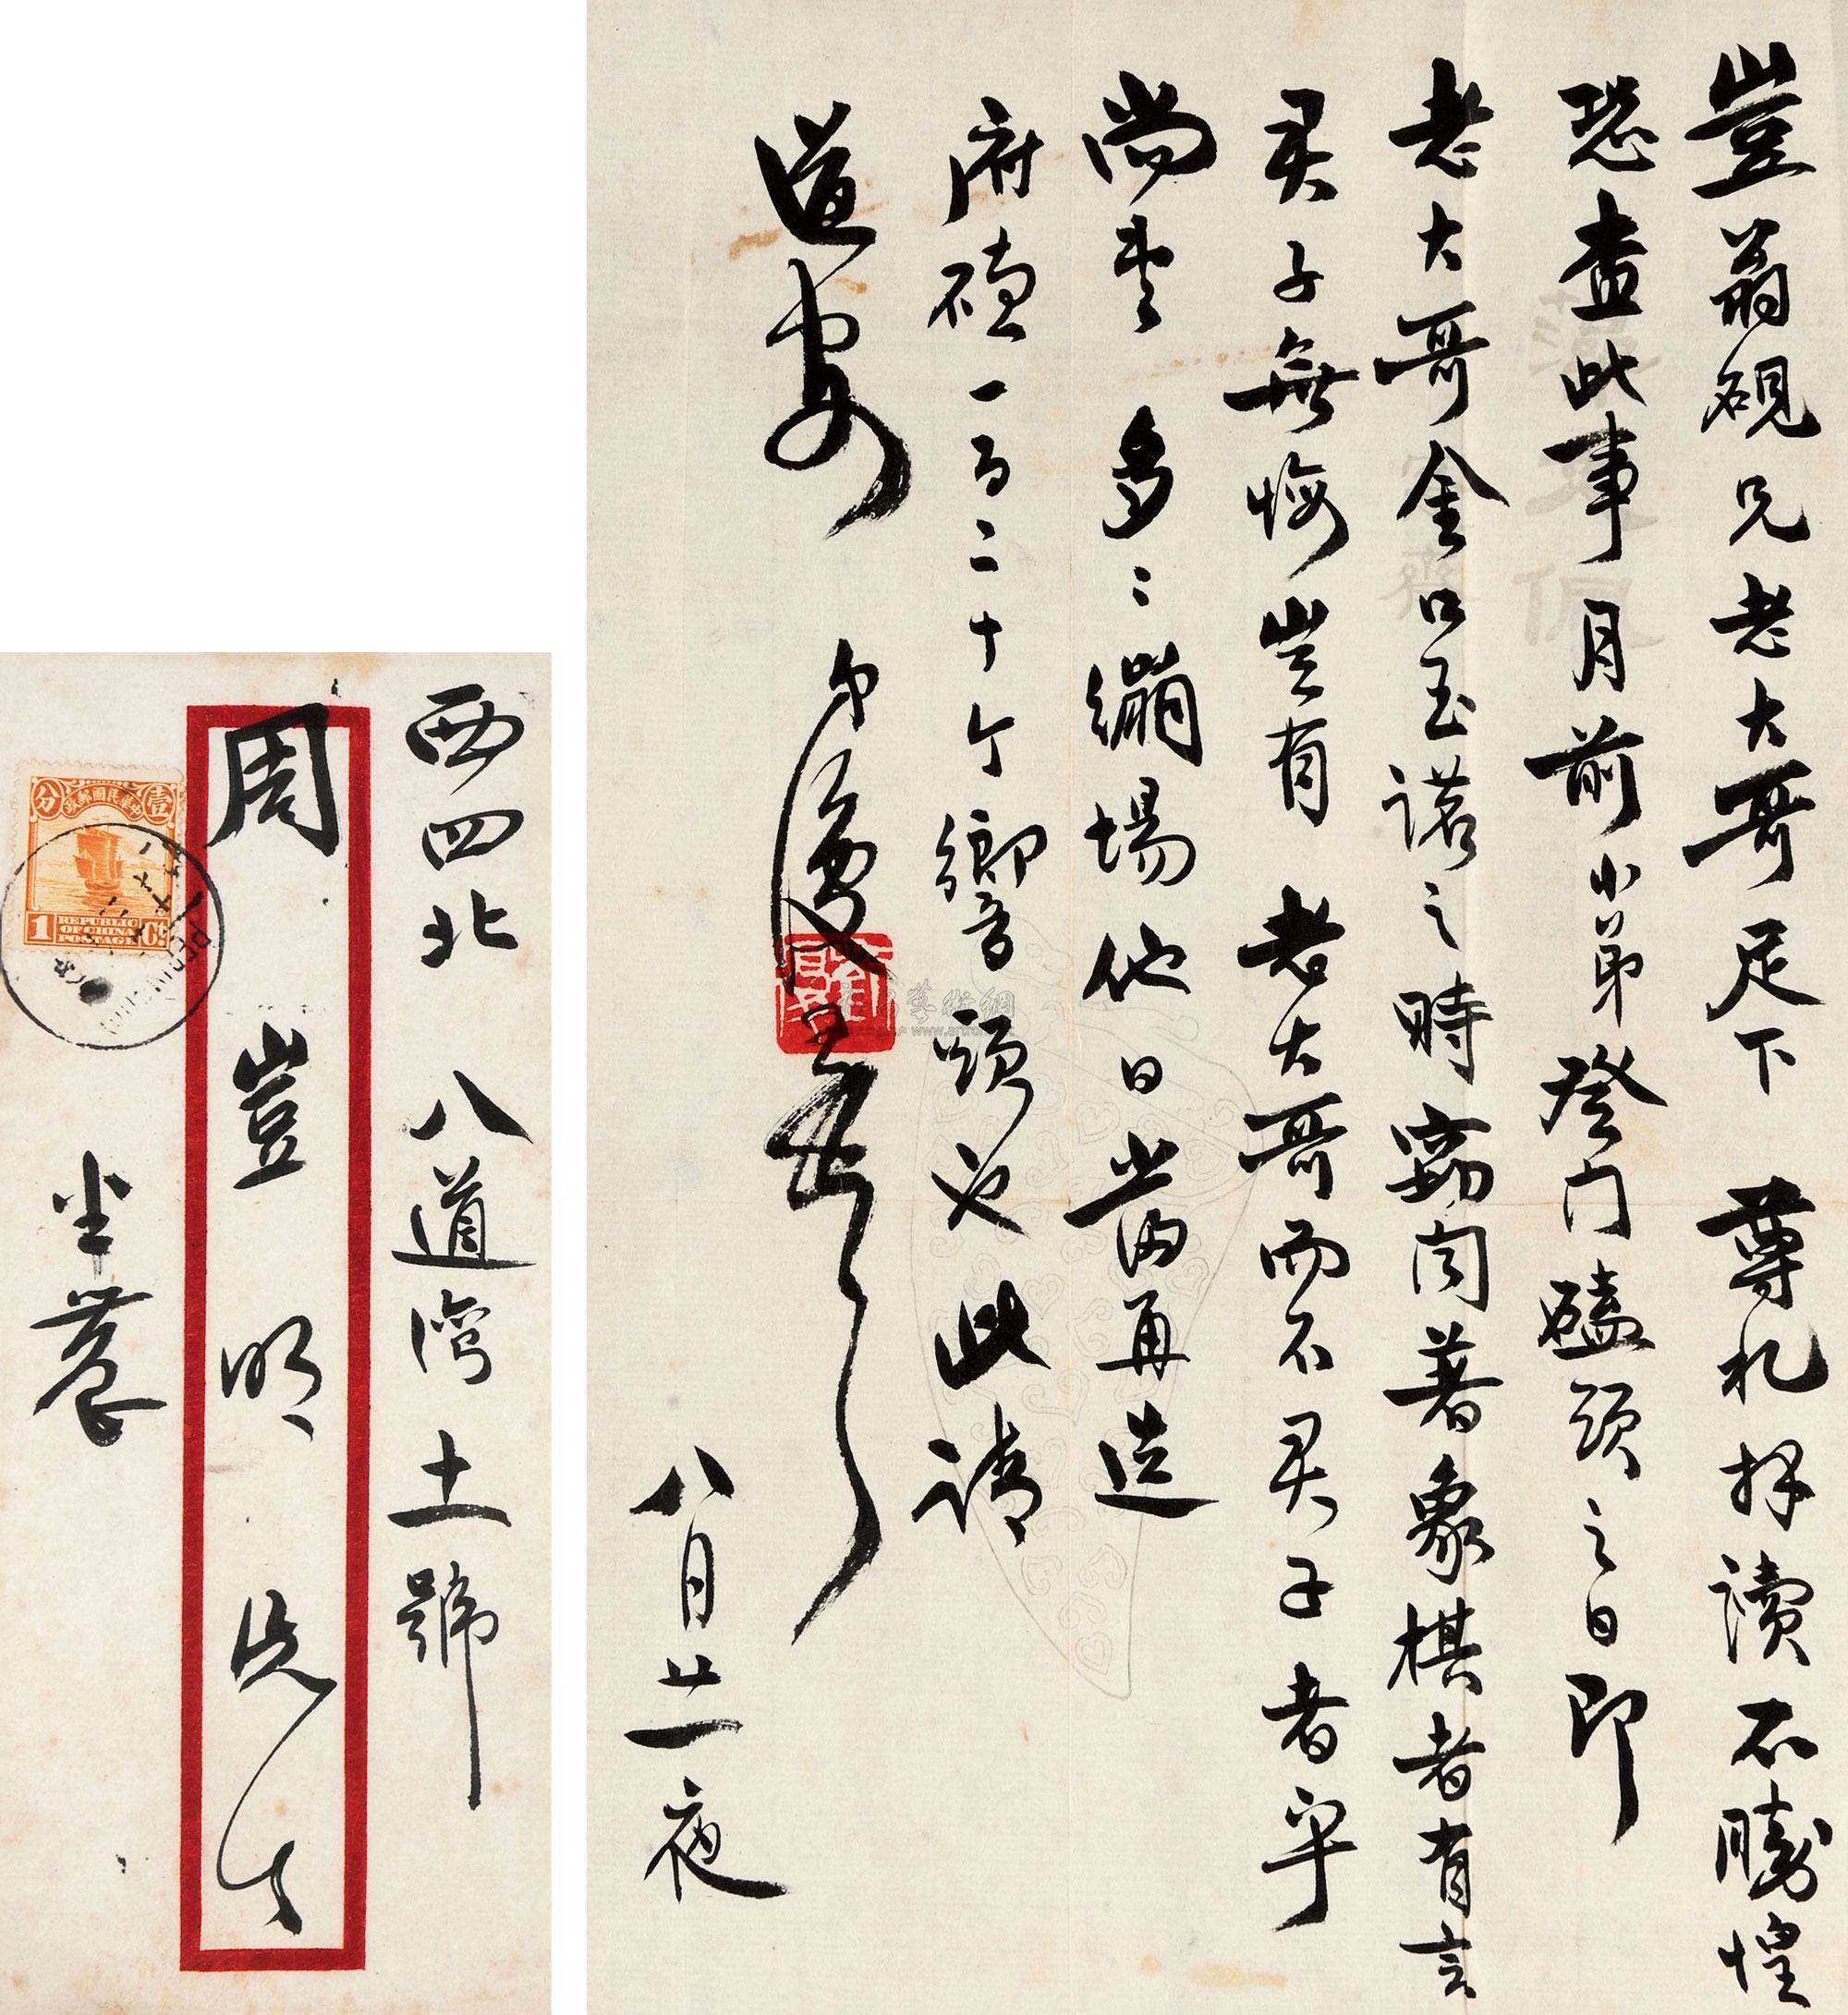 豈翁硯兄老大哥足下 尊札拜讀不勝惶
恐查此事月前小弟登門磕頭之日即
老大哥金口玉諾之時竊聞著象棋者有言
君子無悔豈有 老大哥而不君子者乎
尚 多〻繃場他日當再造
府磕一百二十个響頭也此請
道安 弟復
八月廿一夜
西四北 八道灣十一號
周豈明先生
半農
中華民國郵政
壹 分
1
REPUBLIC
OF CHINA
POSTAGE
PEKING